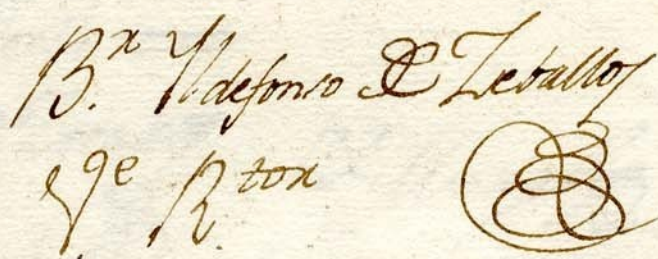 B.r Yldefonso de Zevallos
Vze R.tor